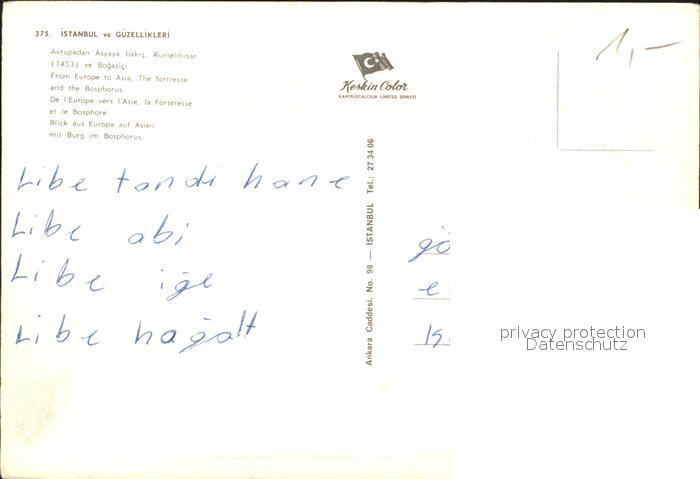 375. İSTANBUL ve GÜZELLİKLERİ
Avrupadan Asyaya bakış, Rumelihisar
(1453) ve Boğaziçi
From Europe to Asia, The fortresse
and the Bosphorus
De l'Europe vers l'Asie, la Forteresse
et le Bosphore
Blick aus Europa auf Asien
mit Burg im Bosphorus
Keskin Color
KARTPOSTALCILIK LİMİTED ŞİRKETİ
1,-
Libe tondi hane
Libe abi
Libe iğe
Libe hağalt
Ankara Caddesi, No. 98 — İSTANBUL Tel.: 27 34 06
gö
e
privacy protection
Datenschutz